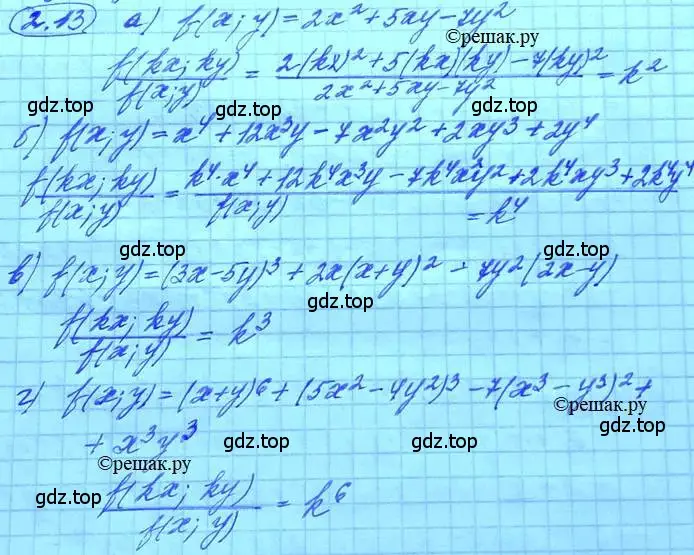 2.13 а) f(x; y) = 2x² + 5xy - 7y²
©решак.ру
f(kx; ky) / f(x; y) = 2(kx)² + 5(kx)(ky) - 7(ky)² / 2x² + 5xy - 7y² = k²
gdz.top gdz.top gdz.top
б) f(x; y) = x⁴ + 12x³y - 7x²y² + 2xy³ + 2y⁴
f(kx; ky) / f(x; y) = k⁴·x⁴ + 12k⁴x³y - 7k⁴x²y² + 2k⁴xy³ + 2k⁴y⁴ / f(x; y) = k⁴
gdz.top gdz.top
в) f(x; y) = (3x - 5y)³ + 2x(x + y)² - 7y²(2x - y)
gdz.top
f(kx; ky) / f(x; y) = k³
gdz.top gdz.top gdz.top
г) f(x; y) = (x + y)⁶ + (5x² - 4y²)³ - 7(x³ - y³)² +
©решак.ру
+ x³y³
gdz.top gdz.top gdz.top
©решак.ру
f(kx; ky) / f(x; y) = k⁶
gdz.top gdz.top